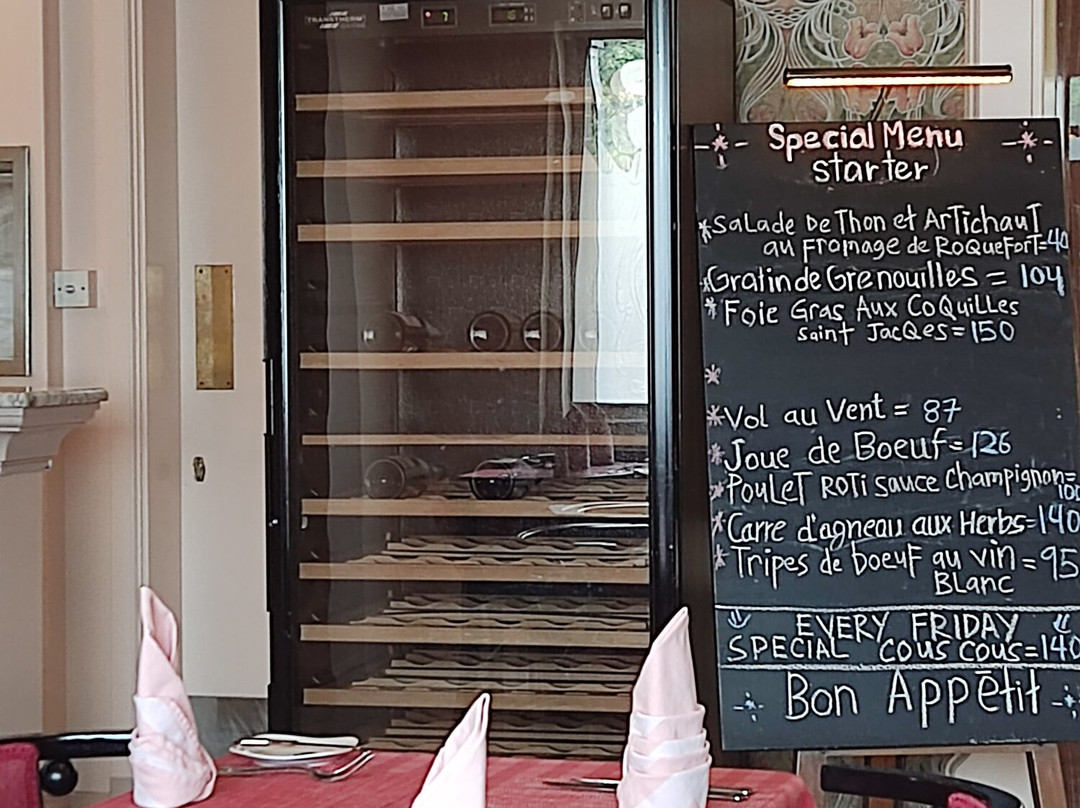 TRANSTHERM
7
Special Menu
starter
Salade De Thon et Artichaut
au fromage de Roquefort=40
Gratin de Grenouilles = 104
Foie Gras Aux Coquilles
saint Jacqes=150
Vol au Vent = 87
Joue de Boeuf=126
Poulet Roti sauce Champignon=
100
Carre d'agneau aux Herbs=140
Tripes de boeuf au vin =95
Blanc
EVERY FRIDAY
SPECIAL cous cous=140
Bon Appētit